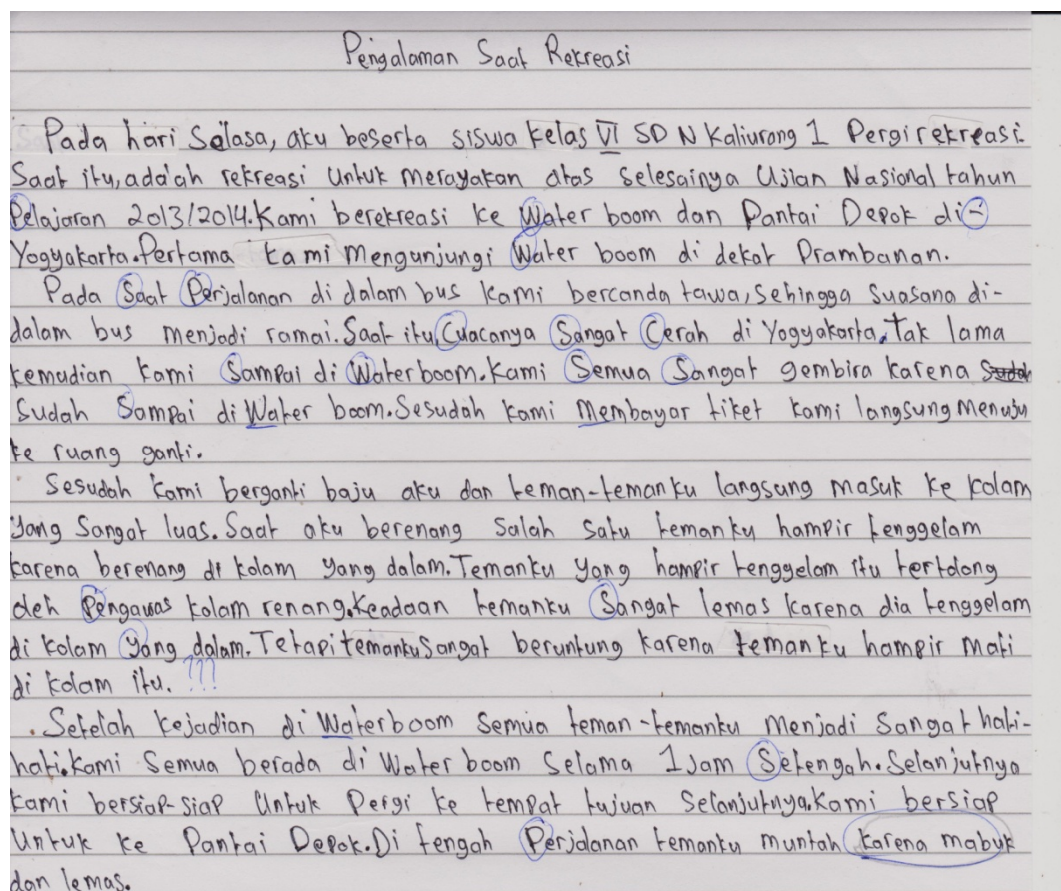 Pengalaman Saat Rekreasi
Pada hari Selasa, aku beserta siswa kelas VI SD N Kaliurang 1 Pergi rekreasi.
Saat itu, adalah rekreasi Untuk merayakan atas selesainya Ujian Nasional tahun
Pelajaran 2013/2014. Kami berekreasi ke Water boom dan Pantai Depok di-
Yogyakarta. Pertama kami Mengunjungi Water boom di dekat Prambanan.
Pada Saat Perjalanan di dalam bus kami bercanda tawa, Sehingga Suasana di-
dalam bus menjadi ramai. Saat itu Cuacanya Sangat Cerah di Yogyakarta, Tak lama
kemudian kami Sampai di Waterboom. Kami Semua Sangat gembira karena Sudah
Sudah Sampai di Water boom. Sesudah kami Membayar tiket kami langsung Menuju
ke ruang ganti.
Sesudah kami berganti baju aku dan teman-temanku langsung masuk ke kolam
Yang Sangat luas. Saat aku berenang Salah Satu temanku hampir tenggelam
karena berenang di kolam yang dalam. Temanku yang hampir tenggelam itu tertolong
oleh Pengawas kolam renang. Keadaan temanku Sangat lemas karena dia tenggelam
di kolam yang dalam. Tetapi temanku Sangat beruntung karena temanku hampir mati
di kolam itu. ???
Setelah kejadian di Waterboom Semua teman-temanku Menjadi Sangat hati-
hati. Kami Semua berada di Water boom Selama 1 Jam Setengah. Selanjutnya
kami bersiap-siap Untuk Pergi ke tempat tujuan Selanjutnya. Kami bersiap
Untuk ke Pantai Depok. Di tengah Perjalanan temanku muntah karena mabuk
dan lemas.